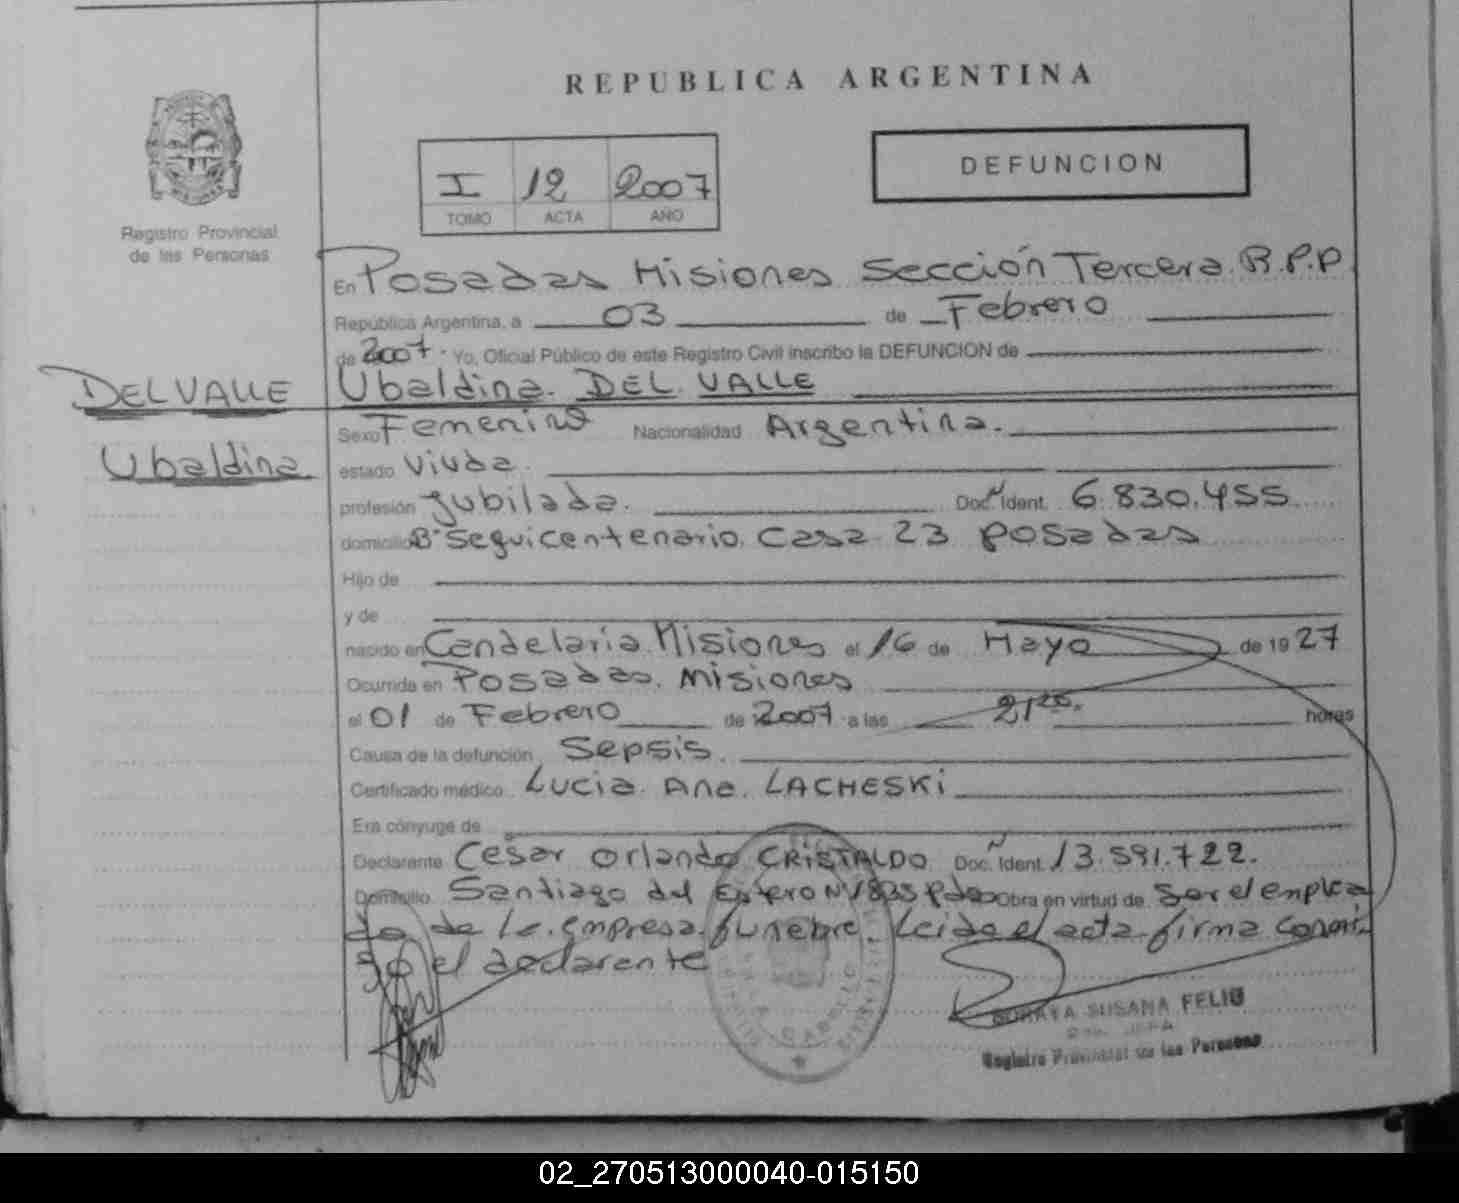 REPUBLICA ARGENTINA
I 12 2007
TOMO ACTA AÑO
DEFUNCION
Registro Provincial
de las Personas
En Posadas Misiones Sección Tercera. R.P.P
República Argentina, a 03 de Febrero
de 2007. Yo, Oficial Público de este Registro Civil inscribo la DEFUNCION de
DEL VALLE
Ubaldina
Ubaldina. DEL VALLE
Sexo Femenino Nacionalidad Argentina.
estado Viuda.
profesión Jubilada. Doc. Ident. 6.830.455
domicilio B° Sequicentenario. Casa 23 Posadas
Hijo de
y de
nacido en Candelaria Misiones el 16 de Mayo de 1927
Ocurrida en Posadas. Misiones
el 01 de Febrero de 2007 a las 21 horas
Causa de la defunción Sepsis.
Certificado médico Lucia. Ana. LACHESKi
Era cónyuge de
Declarante Cesar Orlando CRISTALDO. Doc. Ident. 13.591.722.
Domicilio Santiago del Estero N° 1835 Pdas Obra en virtud de Ser el emplea
do de la empresa funebre. Leida el acta firma conmi
go el declarente
SORAYA SUSANA FELIU
Registro Provincial de las Personas
02_270513000040-015150